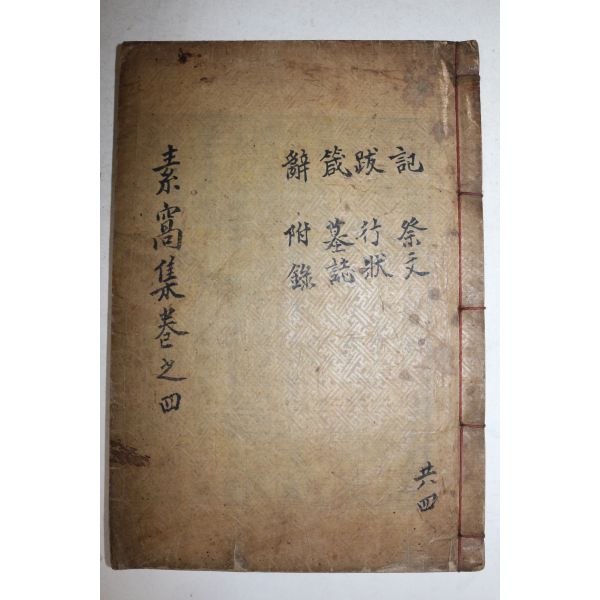 共四
記 祭文
跋 行狀
箴 墓誌
辭 附錄
素窩集卷之四